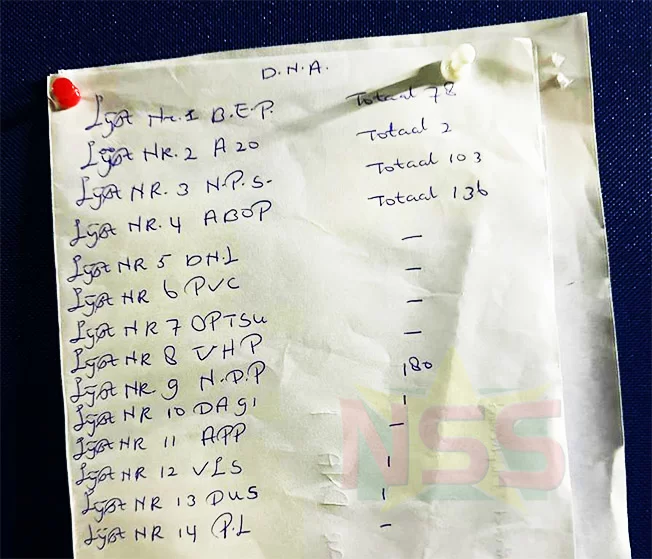 D.N.A.
Lijst Nr.1 B.E.P. Totaal 78
Lijst NR.2 A20 Totaal 2
Lijst NR.3 N.P.S. Totaal 103
Lijst NR.4 ABOP Totaal 136
Lijst NR 5 DNL –
Lijst NR 6 PVC –
Lijst NR 7 OPTSU –
Lijst NR 8 VHP –
Lijst NR 9 N.D.P 180
Lijst NR 10 DA91 1
Lijst NR 11 APP –
Lijst NR 12 VLS 1
Lijst NR 13 DUS 1
Lijst NR 14 P.L –
NSS